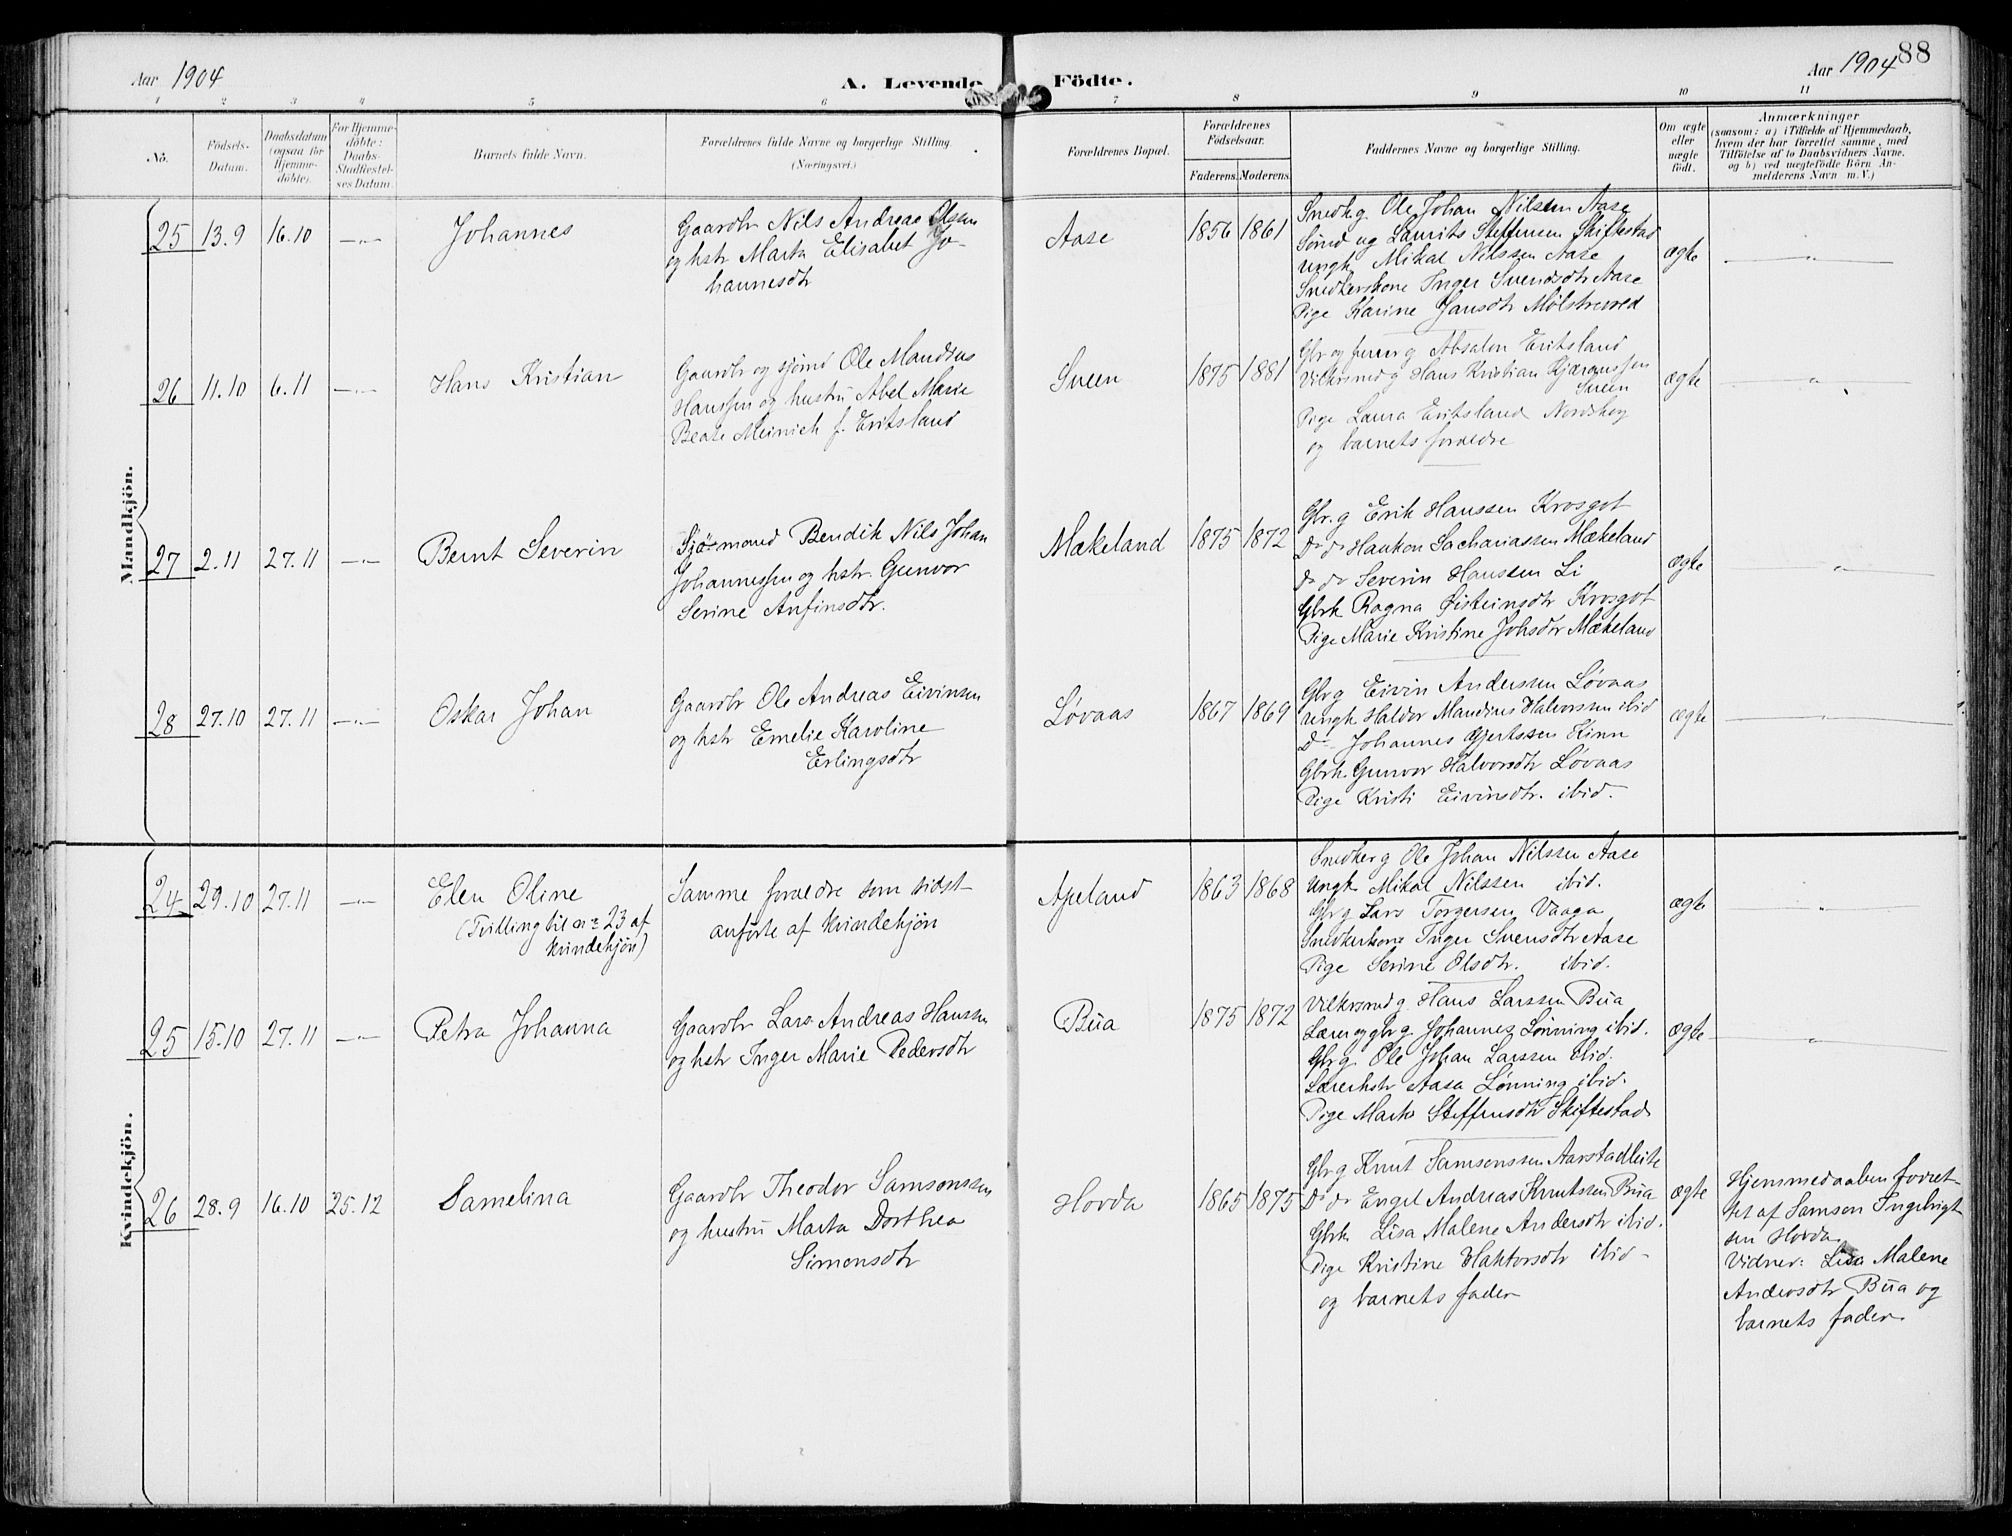 88
Aar 1904
A. Levende Födte.
Aar 1904
1 2 3 4 5 6 7 8 9 10 11
No.
Födsels-
Datum.
Daabsdatum
(ogsaa for
Hjemme-
döbte).
For Hjemme-
döbte:
Daabs-
Stadfæstel-
ses Datum.
Barnets fulde Navn.
Forældrenes fulde Navne og borgerlige Stilling.
(Næringsvei.)
Forældrenes Bopæl.
Forældrenes
Födselsaar.
Faderens. Moderens.
Faddernes Navne og borgerlige Stilling.
Om ægte
eller
uægte
födt.
Anmærkninger
(saasom: a) i Tilfælde af Hjemmedaab,
hvem der har forrettet samme, med
Tilföielse af to Daabsvidners Navne.
og b) ved uægtefödte Börn An-
melderens Navn m. V.)
Mandkjön.
25 13.9 16.10 —"—
Johannes
Gaardbr Nils Andreas Olssen
og hstr Marta Elisabet Jo-
hannesdtr
Aase
1856 1861
Snedkg. Ole Johan Nilssen Aase
Sømd og Laurits Steffensen Skiftestad
Ungk. Mikal Nilssen Aase
Snedkerkone Inger Svendsdtr Aase
Pige Karine Jansdtr Mølstreved
ægte
—"—
26 11.10 6.11 —"—
Hans Kristian
Gaardbr og sjømd Ole Mandius
Hanssen og hustru Abel Marie
Beate Meinich f. Eritsland
Sveen
1875 1881
Gbr og Absalon Eritsland
Hans Kristian
Sveen
Pige Laura Eritsland Nordskog
og barnets foreldre
ægte
—"—
27 2.11 27.11 —"—
Bernt Severin
Sjømand Bendik Nils Johan
Johannessen og hstr. Gunvor
Serine Anfinsdtr.
Mækeland
1875 1872
Gbr.g Erik Hanssen Krosgot
Do do Haakon Sachariassen Mækeland
Do do Severin Hanssen Li
Gbrk Ragna Øisteinsdtr Krosgot
Pige Marie Kristine Johsdtr Mækeland
ægte
—"—
28 27.10 27.11 —"—
Oskar Johan
Gaardbr Ole Andreas Eivinsen
og hstr Emelie Karoline
Erlingsdtr
Løvaas
1867 1869
Gbrg Eivin Anderssen Løvaas
Ungk Haldor Mandius Halvorssen ibid
Do Johannes Gjertssen Kinn
Gbrk Gunvor Halvorsdtr Løvaas
Pige Kristi Eivinsdtr. ibid.
ægte
—"—
Kvindekjön.
24 29.10 27.11 —"—
Elen Oline
(Tvilling til no 23 af
Kvindekjøn)
Samme foreldre som sidst
anførte af Kvindekjøn
Apeland
1863 1868
Snedkerg Ole Johan Nilssen Aase
Ungk Mikal Nilssen ibid.
Gbrg Lars Torgersen Vaaga
Snedkerkone Inger Svensdtr Aase
Pige Serine Olsdtr. ibid.
ægte
—"—
25 15.10 27.11 —"—
Petra Johanna
Gaardbr Lars Andreas Hanssen
og hstr Inger Marie Pedersdtr
Bua
1875 1872
Hans Larssen Bua
Lærer og gbrg Johannes Lønning ibid.
Gbrg. Ole Johan Larssen ibid.
Lærerhstr Aasa Lønning ibid.
Pige Marta Steffensdtr Skiftestad
ægte
—"—
26 28.9 16.10 25.12
Samelina
Gaardbr Theodor Samsonssen
og hustru Marta Dorthea
Simonsdtr
Hovda
1865 1875
Gbrg Knut Samsonssen Aarstadleite
Do do Engel Andreas Knutssen Bua
Gbrk Lisa Malene Andersdtr ibid.
Pige Kristine Haktorsdtr ibid
og barnets fader
ægte
Hjemmedaaben forret-
tet af Samson Ingebrigt-
sen Hovda.
Vidner: Lisa Malene
Andersdtr Bua og
barnets fader.